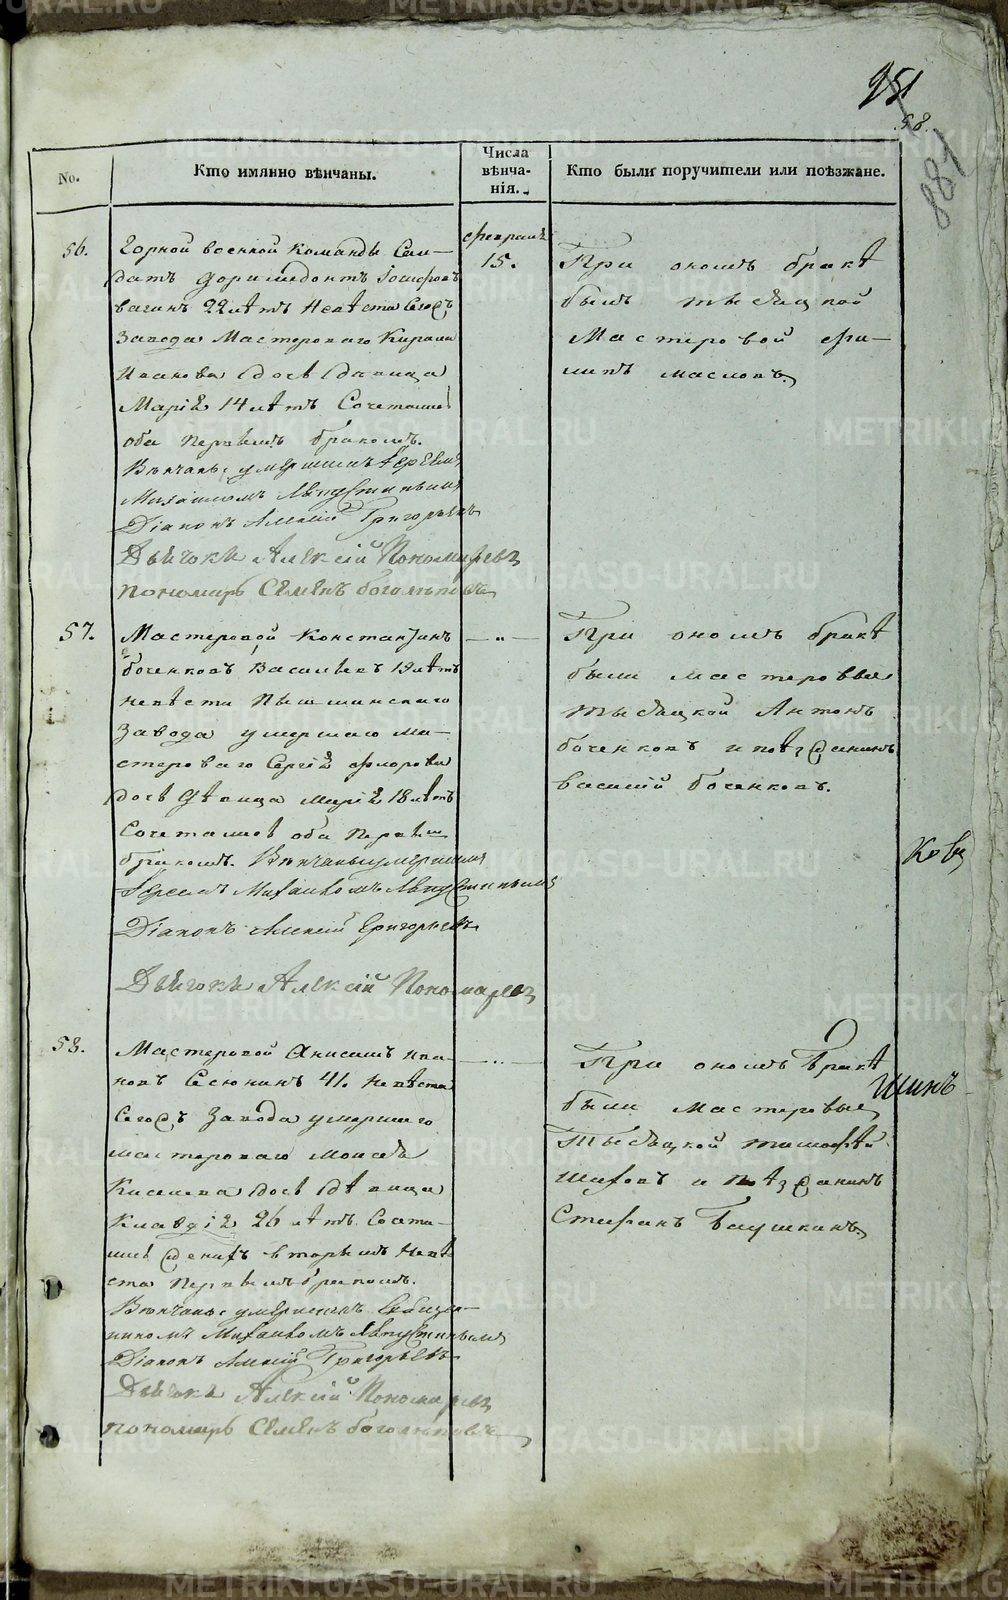 951
58.
884
No.
Кто имянно вѣнчаны.
Числа
вѣнча-
нія.
Кто были поручители или поѣзжане.
56.
Горной военной команды Сол-
датъ Доримедонтъ
22 лѣтъ невѣста сегожъ
завода Мастероваго Кирила
Иванова дочь дѣвица
Марія 14 лѣтъ Сочетались
оба первымъ бракомъ.
Вѣнчаны умершимъ Іереемъ
Михаиломъ
Діаконъ Алексій Григорьевъ
Дьячокъ Алексій Пономаревъ
пономарь Семенъ Боголѣповъ
февраля
15.
При ономъ бракѣ
былъ тысяцкой
Мастеровой Фи-
липъ Масловъ
57.
Мастеровой Константинъ
Боченковъ Васильевъ 19 лѣтъ
невѣста Пышминскаго
завода умершаго ма-
стероваго Сергія Фролова
дочь дѣвица Марія 18 лѣтъ
Сочетались оба первымъ
бракомъ. Вѣнчаны умершимъ
Іереемъ Михаиломъ
Діаконъ Алексій Григорьевъ
Дьячокъ Алексій Пономаревъ
— „ —
При ономъ бракѣ
были мастеровые
тысяцкой Антонъ
Боченковъ и поѣзжанинъ
Василій Боченковъ.
58.
Мастеровой Анисимъ Ива-
новъ 41. невѣста
Сегожъ Завода умершаго
мастероваго Моисея
Киселева дочь дѣвица
Клавдія 26 лѣтъ. Сочета-
лись женихъ вторымъ невѣ-
ста первымъ бракомъ.
Вѣнчаны умершимъ
Михаиломъ
Діаконъ Алексій Григорьевъ
Дьячокъ Алексій Пономаревъ
пономарь Семенъ Боголѣповъ
— „ —
При ономъ бракѣ
были мастеровые
Тысяцкой Тимофей
и поѣзжанинъ
Стефанъ
METRIKI.GASO-URAL.RU